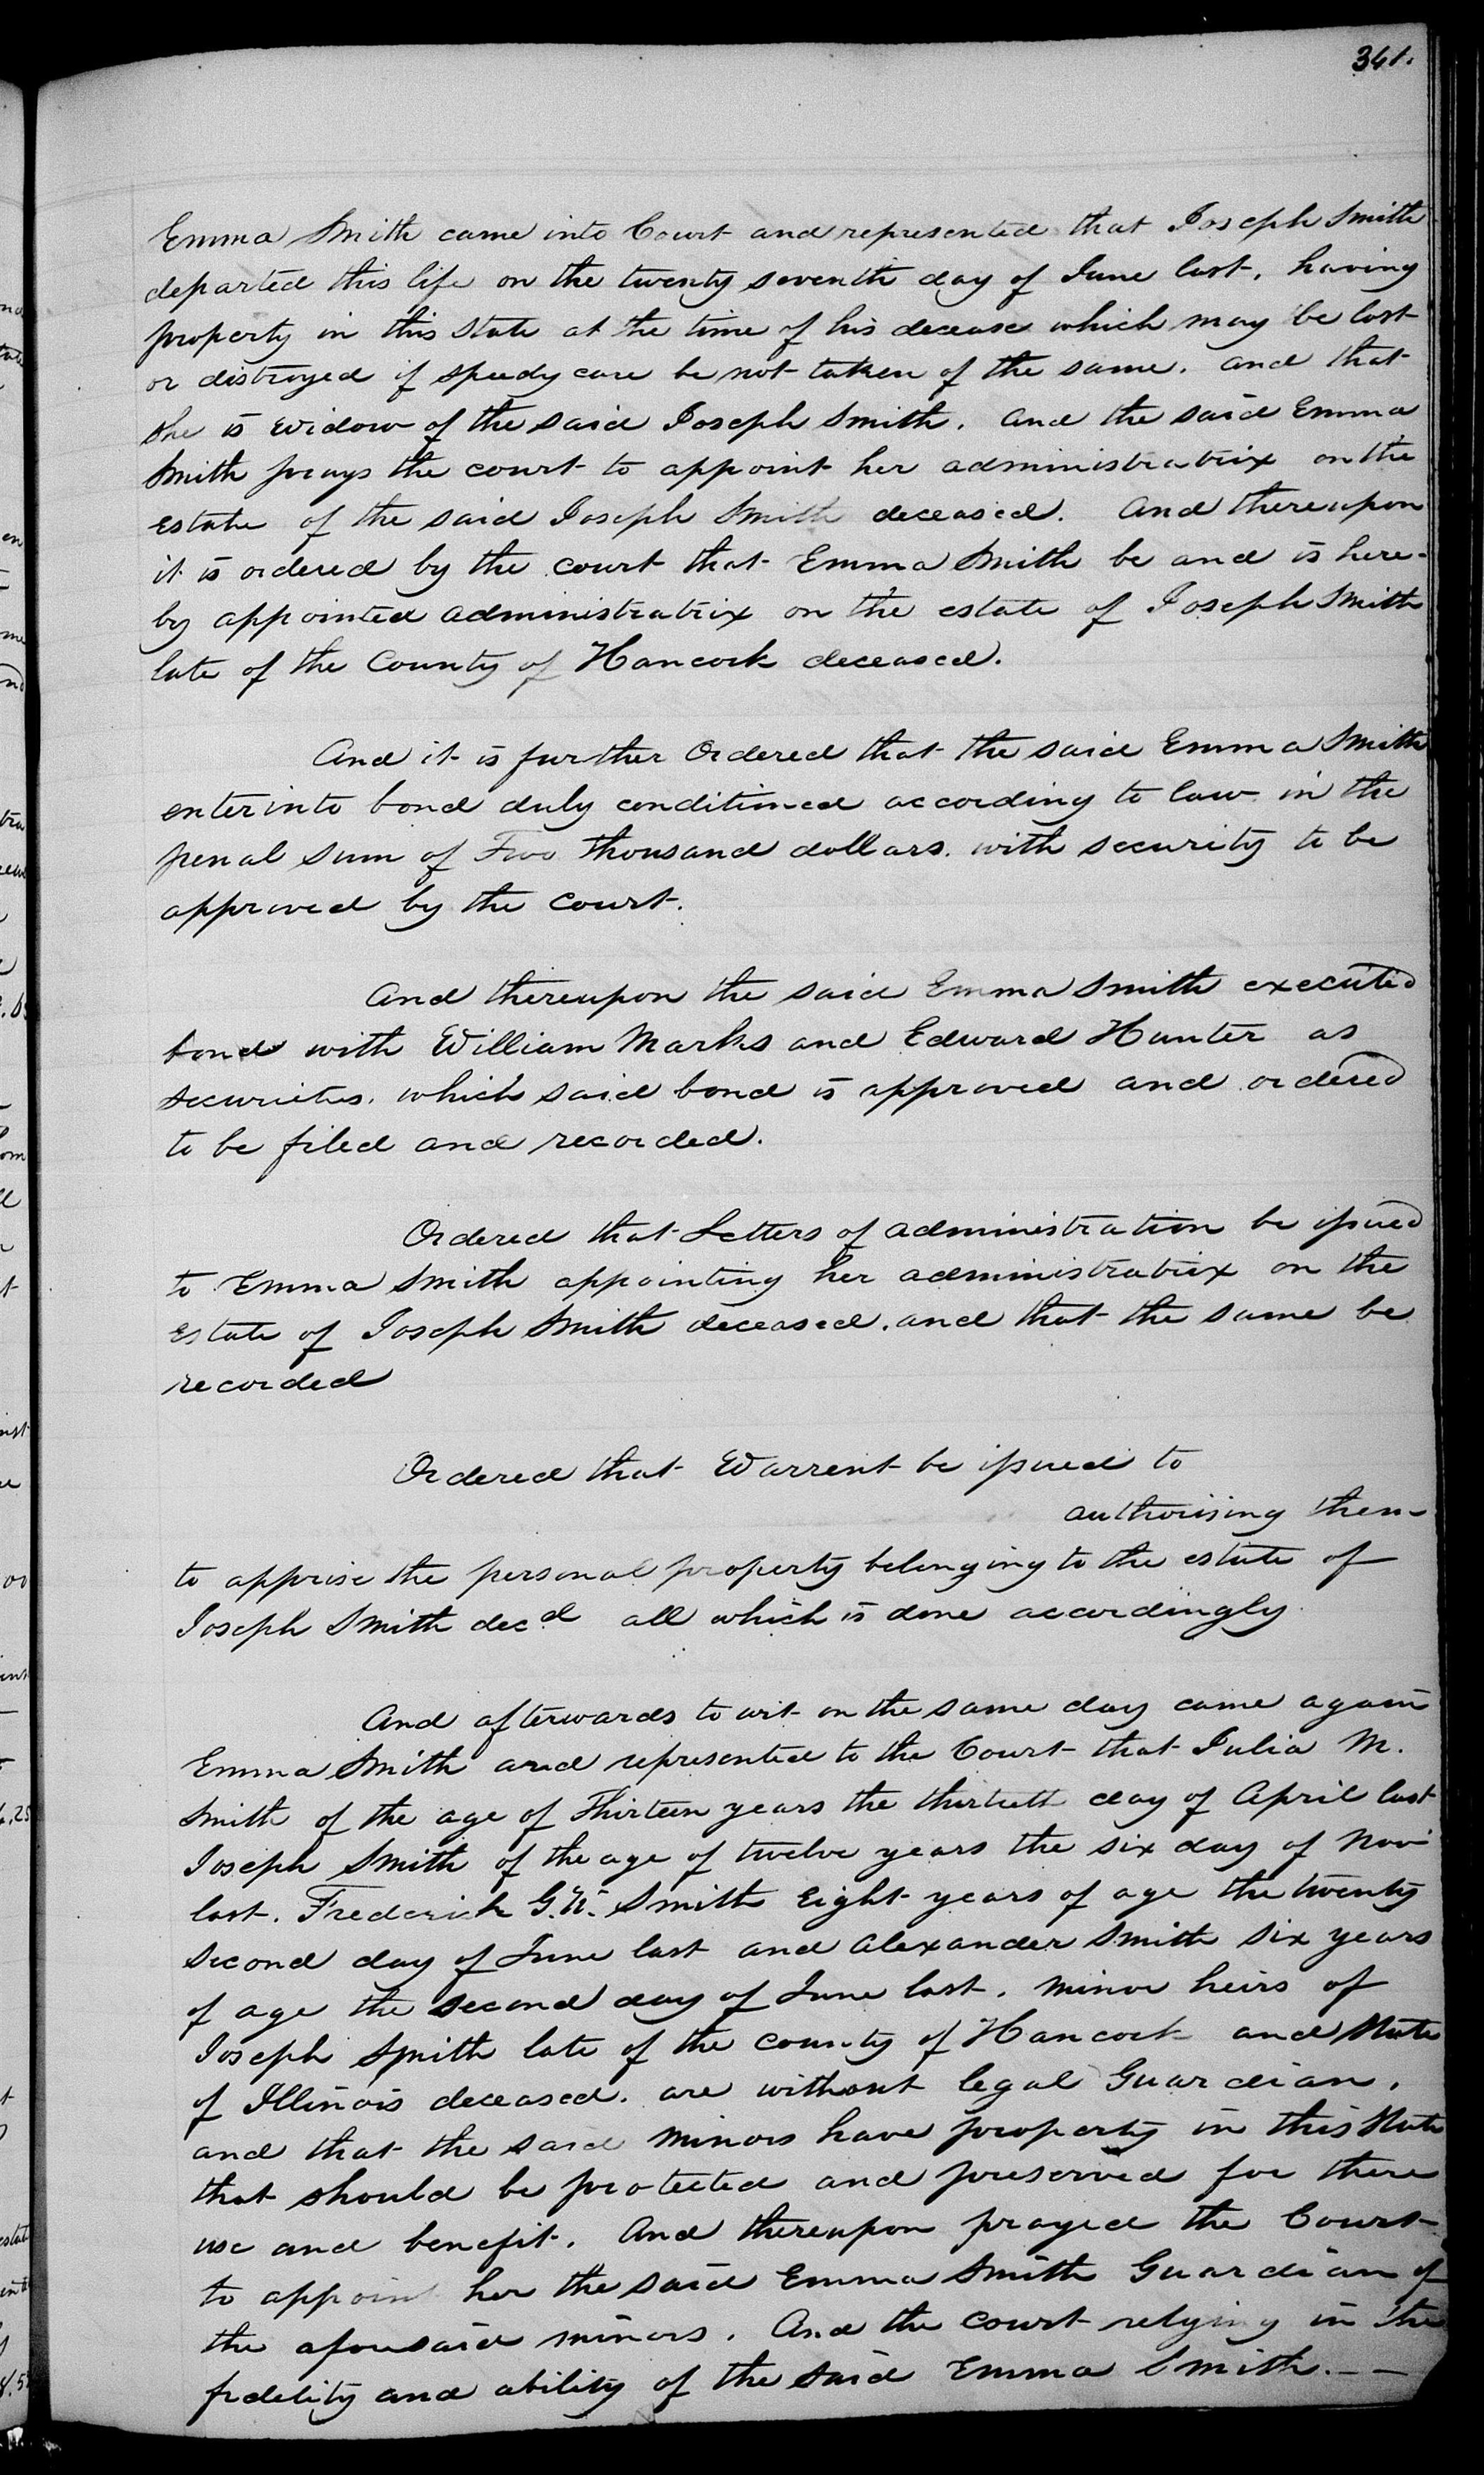 341.
Emma Smith came into Court and represented that Joseph Smith
departed this life on the twenty seventh day of June last, having
property in this State at the time of his decease which may be lost
or distroyed if speedy care be not taken of the same. and that
she is widow of the said Joseph Smith. And the said Emma
Smith prays the court to appoint her administratrix on the
estate of the said Joseph Smith deceased. And thereupon
it is ordered by the court that Emma Smith be and is here-
by appointed administratrix on the estate of Joseph Smith
late of the County of Hancock deceased.
And it is further Ordered that the said Emma Smith
enter into bond duly conditioned according to law in the
penal sum of Two thousand dollars. with security to be
approved by the Court.
And thereupon the said Emma Smith executed
bond with William Marks and Edward Hunter as
securities. which said bond is approved and ordered
to be filed and recorded.
Ordered that Letters of administration be issued
to Emma Smith appointing her administratrix on the
Estate of Joseph Smith deceased. and that the same be
recorded
Ordered that Warrent be issued to
authorising them
to apprise the personal property belonging to the estate of
Joseph Smith decd all which is done accordingly.
And afterwards to wit on the same day came again
Emma Smith and represented to the Court that Julia M.
Smith of the age of Thirteen years the thirteth day of April last
Joseph Smith of the age of twelve years the six day of Nov
last. Frederick G. W. Smith Eight years of age the twenty
second day of June last and Alexander Smith six years
of age the second day of June last. minor heirs of
Joseph Smith late of the county of Hancock and State
of Illinois deceased. are without legal Guardian.
and that the said minors have property in this State
that should be protected and preserved for there
use and benefit. And thereupon prayed the Court
to appoint her the said Emma Smith Guardian of
the aforesaid minors. And the court relying in the
fidelity and ability of the said Emma Smith. --